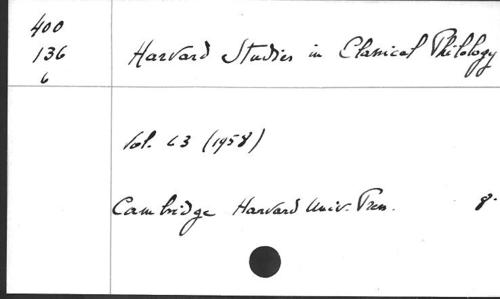 400
136
6
Harvard Studies in Classical Philology
Vol. 63 (1958)
Cambridge Harvard Univ. Press. 8.